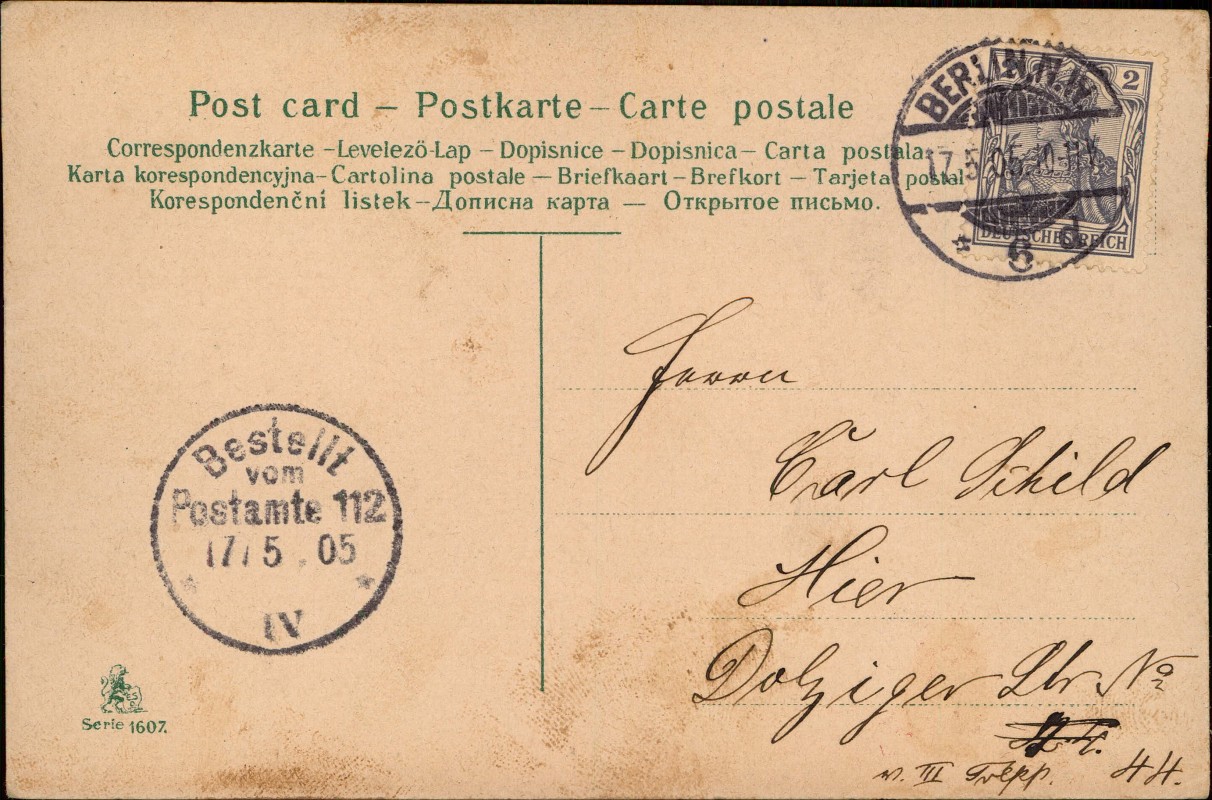 Post card – Postkarte – Carte postale
Correspondenzkarte – Levelező-Lap – Dopisnice – Dopisnica – Carta postala
Karta korespondencyjna – Cartolina postale – Briefkaart – Brefkort – Tarjeta postal
Korespondenční listek – Дописна карта — Открытое письмо.
2
DEUTSCHES REICH
BERLIN N.W.
17.5.05.
* 6 d
Herrn
Carl Schild
Hier
Dolziger Str. No
v. III Trepp. 44.
Bestellt
vom
Postamte 112
17/5.05
* *
IV
Serie 1607.